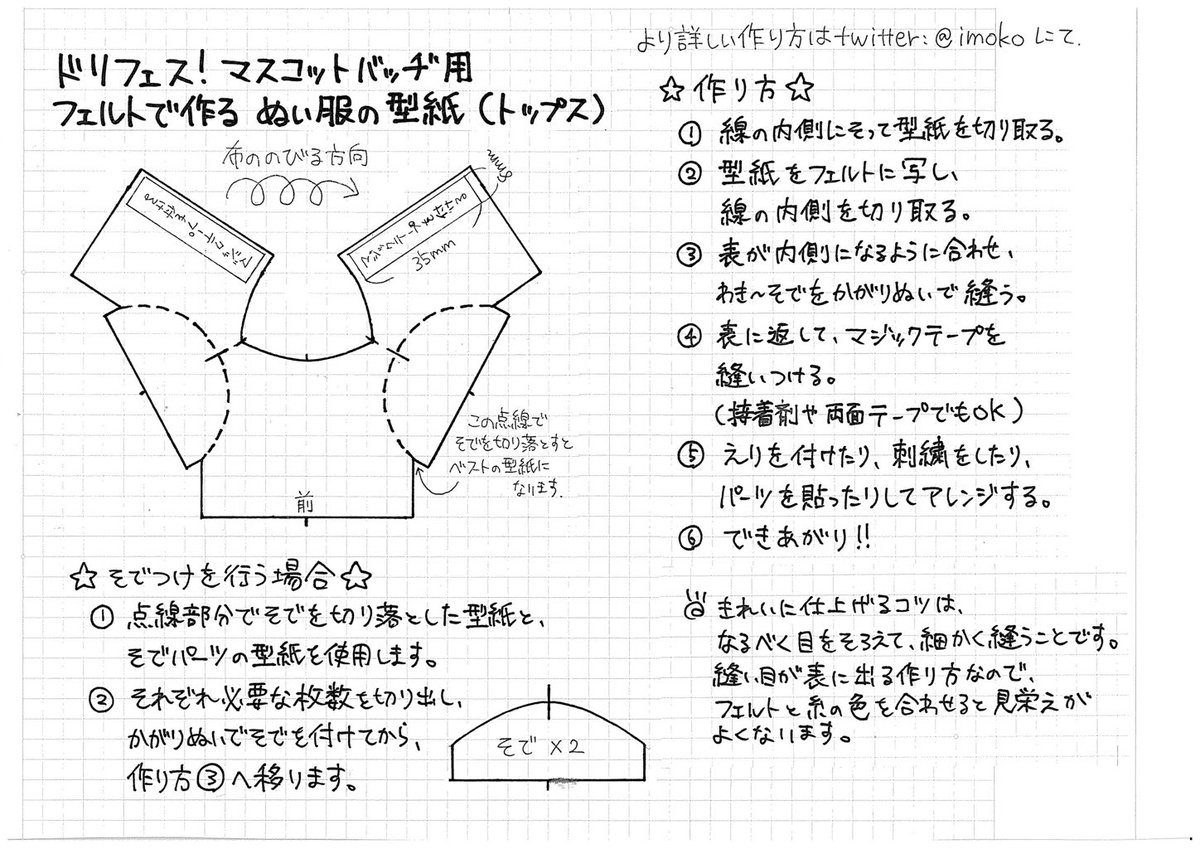 より詳しい作り方はtwitter:@imokoにて.
ドリフェス!マスコットバッヂ用
フェルトで作る ぬい服の型紙(トップス)
布ののびる方向
マジックテープを付ける
マジックテープを付ける
5mm
35mm
この点線で
そでを切り落とすと
ベストの型紙に
なります.
前
☆そでつけを行う場合☆
① 点線部分でそでを切り落とした型紙と、
そでパーツの型紙を使用します。
② それぞれ必要な枚数を切り出し、
かがりぬいでそでを付けてから、
作り方③へ移ります。
そで ×2
☆作り方☆
① 線の内側にそって型紙を切り取る。
② 型紙をフェルトに写し、
線の内側を切り取る。
③ 表が内側になるように合わせ、
わき〜そでをかがりぬいで縫う。
④ 表に返して、マジックテープを
縫いつける。
(接着剤や両面テープでもOK)
⑤ えりを付けたり、刺繍をしたり、
パーツを貼ったりしてアレンジする。
⑥ できあがり!!
きれいに仕上げるコツは、
なるべく目をそろえて、細かく縫うことです。
縫い目が表に出る作り方なので、
フェルトと糸の色を合わせると見栄えが
よくなります。